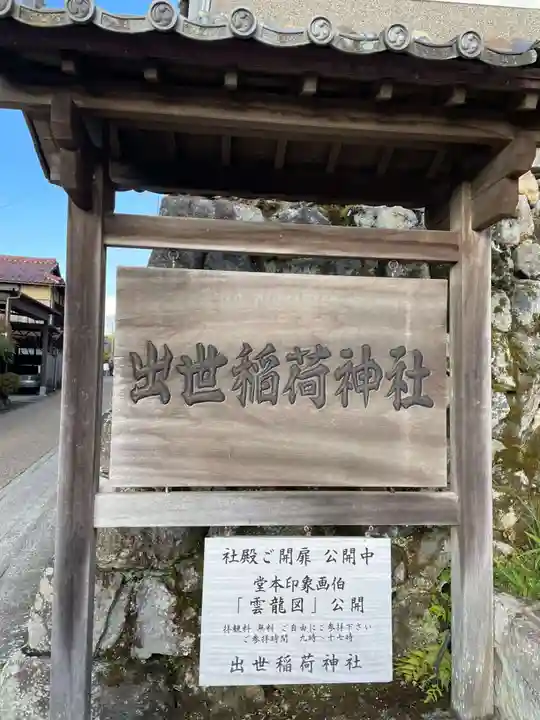 出世稲荷神社
社殿ご開扉 公開中
堂本印象画伯
「雲龍図」公開
拝観料 無料 ご自由にご参拝下さい
ご参拝時間 九時〜十七時
出世稲荷神社